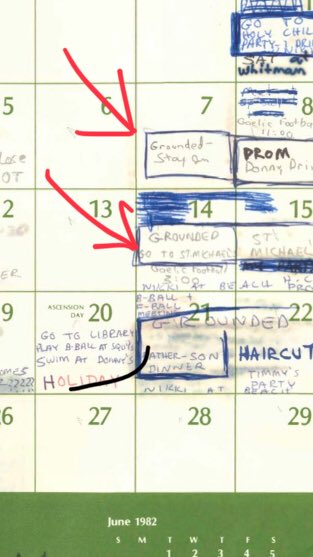 GO TO
HOLY CHIL
PARTY
SAT at
Whitman
5
6
7
8
Gaelic Footba
11:00
close
OT
Grounded-
Stay in
PROM
Donny Dri
2
13
14
15
GROUNDED
GO TO ST. MICHAELS
ST.
MICHAEL
ER
Gaelic Football
3:00
NIKKI AT BEACH
B-BALL +
F-BALL
9
ASCENSION
DAY
20
21
22
GROUNDED
GO TO LIBRARY
PLAY B-BALL AT SQUI'S
SWIM AT DONNY'S
HOLIDAY
FATHER-SON
DINNER
NIKKI AT
HAIRCUT
TIMMY'S
PARTY
BEACH
26
27
28
29
June 1982
S M T W T F S
1 2 3 4 5